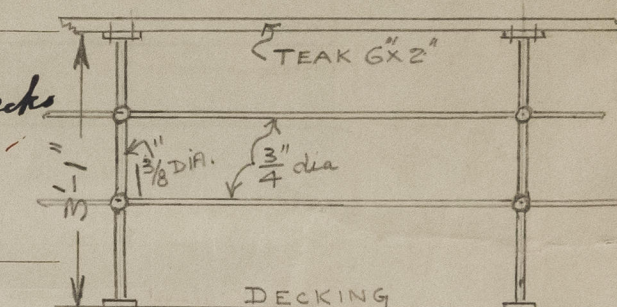 TEAK 6" X 2"
cks
1 3/8" DIA.
3/4" dia
3'-1"
DECKING